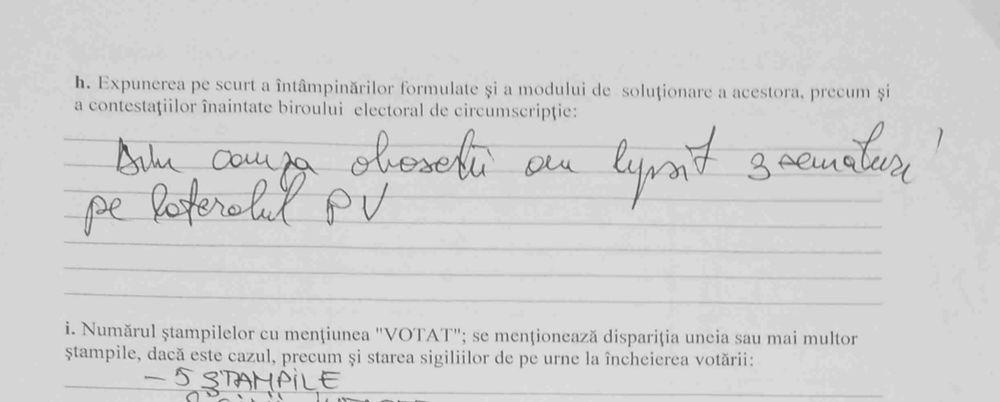 h. Expunerea pe scurt a întâmpinărilor formulate şi a modului de soluţionare a acestora, precum şi
a contestaţiilor înaintate biroului electoral de circumscripţie:
Din cauza oboselii au lipsit 3 semnaturi
pe lateralul PV
i. Numărul ştampilelor cu menţiunea "VOTAT"; se menţionează dispariţia uneia sau mai multor
ştampile, dacă este cazul, precum şi starea sigiliilor de pe urne la încheierea votării:
- 5 ŞTAMPILE